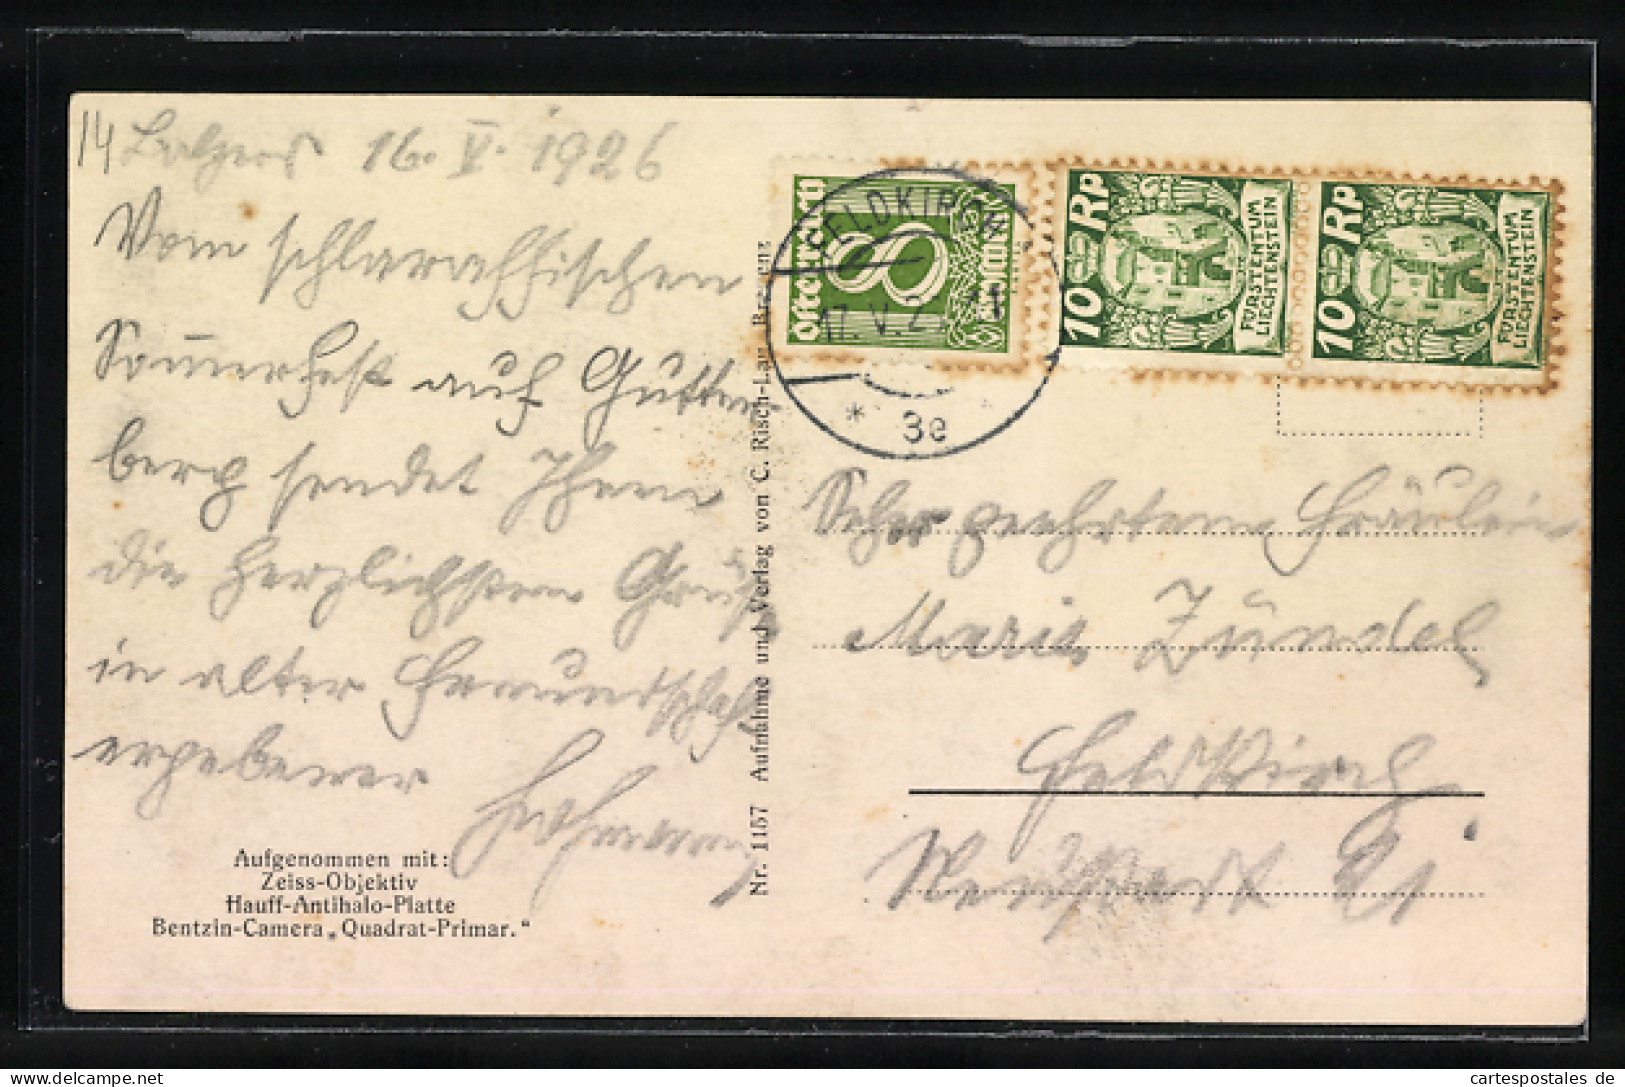 14 Balzers 16. V. 1926
Vom schlaraffischen
Sommerfest auf Gutten
berg sendet Ihnen
die herzlichsten Grüße
in alter Freundschaft
ergebener
Aufgenommen mit:
Zeiss-Objektiv
Hauff-Antihalo-Platte
Bentzin-Camera „Quadrat-Primar."
Nr. 1157 Aufnahme und Verlag von C. Risch-Lau
Österreich
8
FELDKIRCH
17. V. 2
* 3e
10 Rp
FÜRSTENTUM
LIECHTENSTEIN
10 Rp
FÜRSTENTUM
LIECHTENSTEIN
Sehr geehrtem Fräulein
Marie Zündel
Feldkirch
cartespostales de